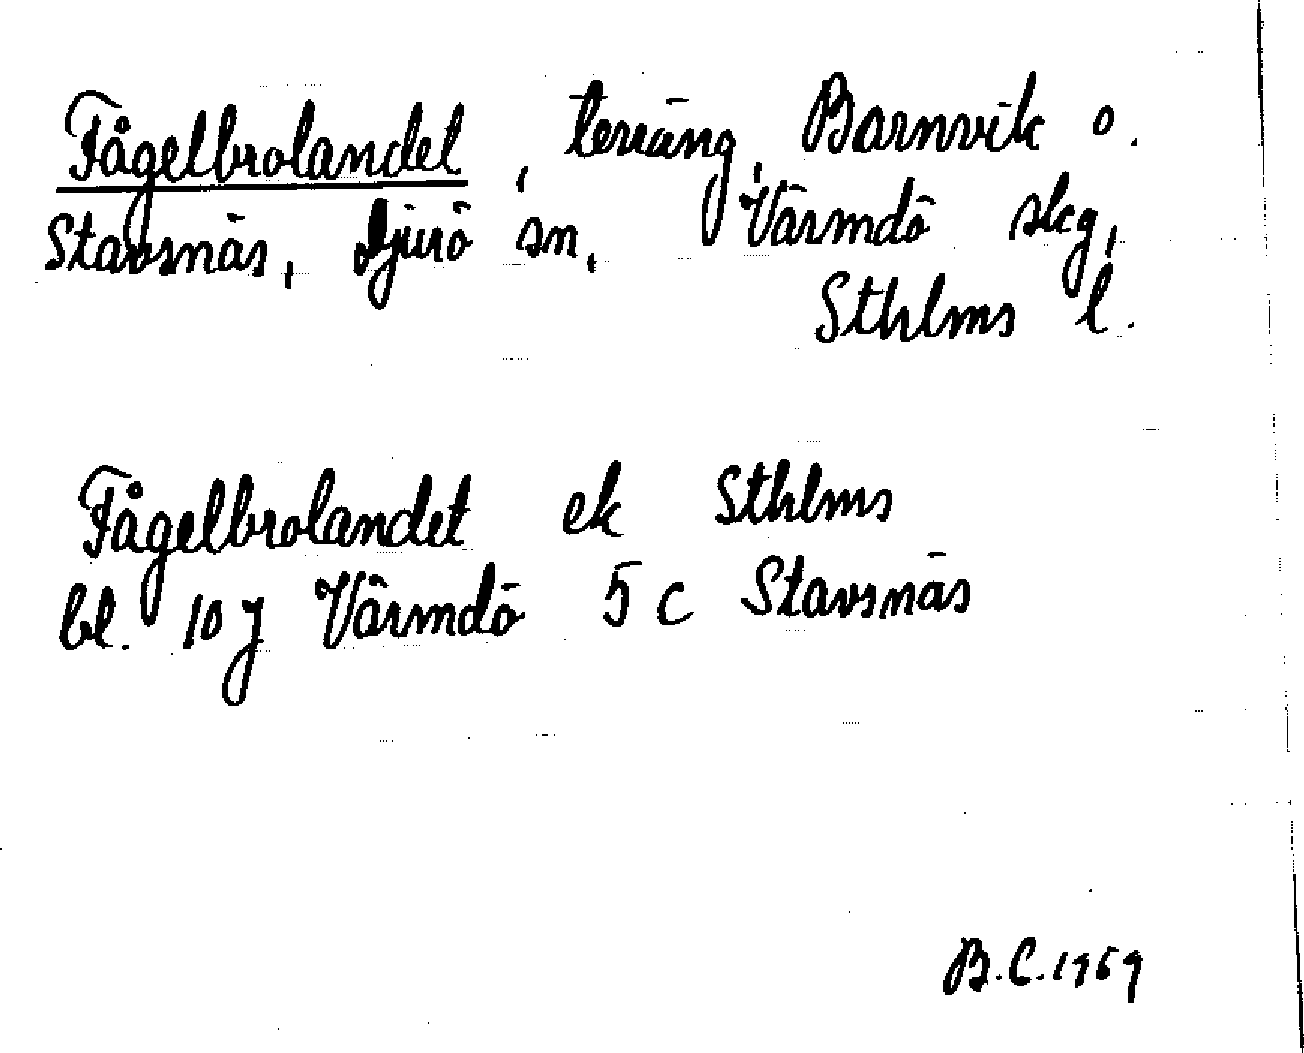 Fågelbrolandet, terräng, Barnvik o.
Stavsnäs, Djurö sn, Värmdö skg,
Sthlms l.
Fågelbrolandet ek Sthlms
bl. 10 J Värmdö 5 c Stavsnäs
B.C. 1969